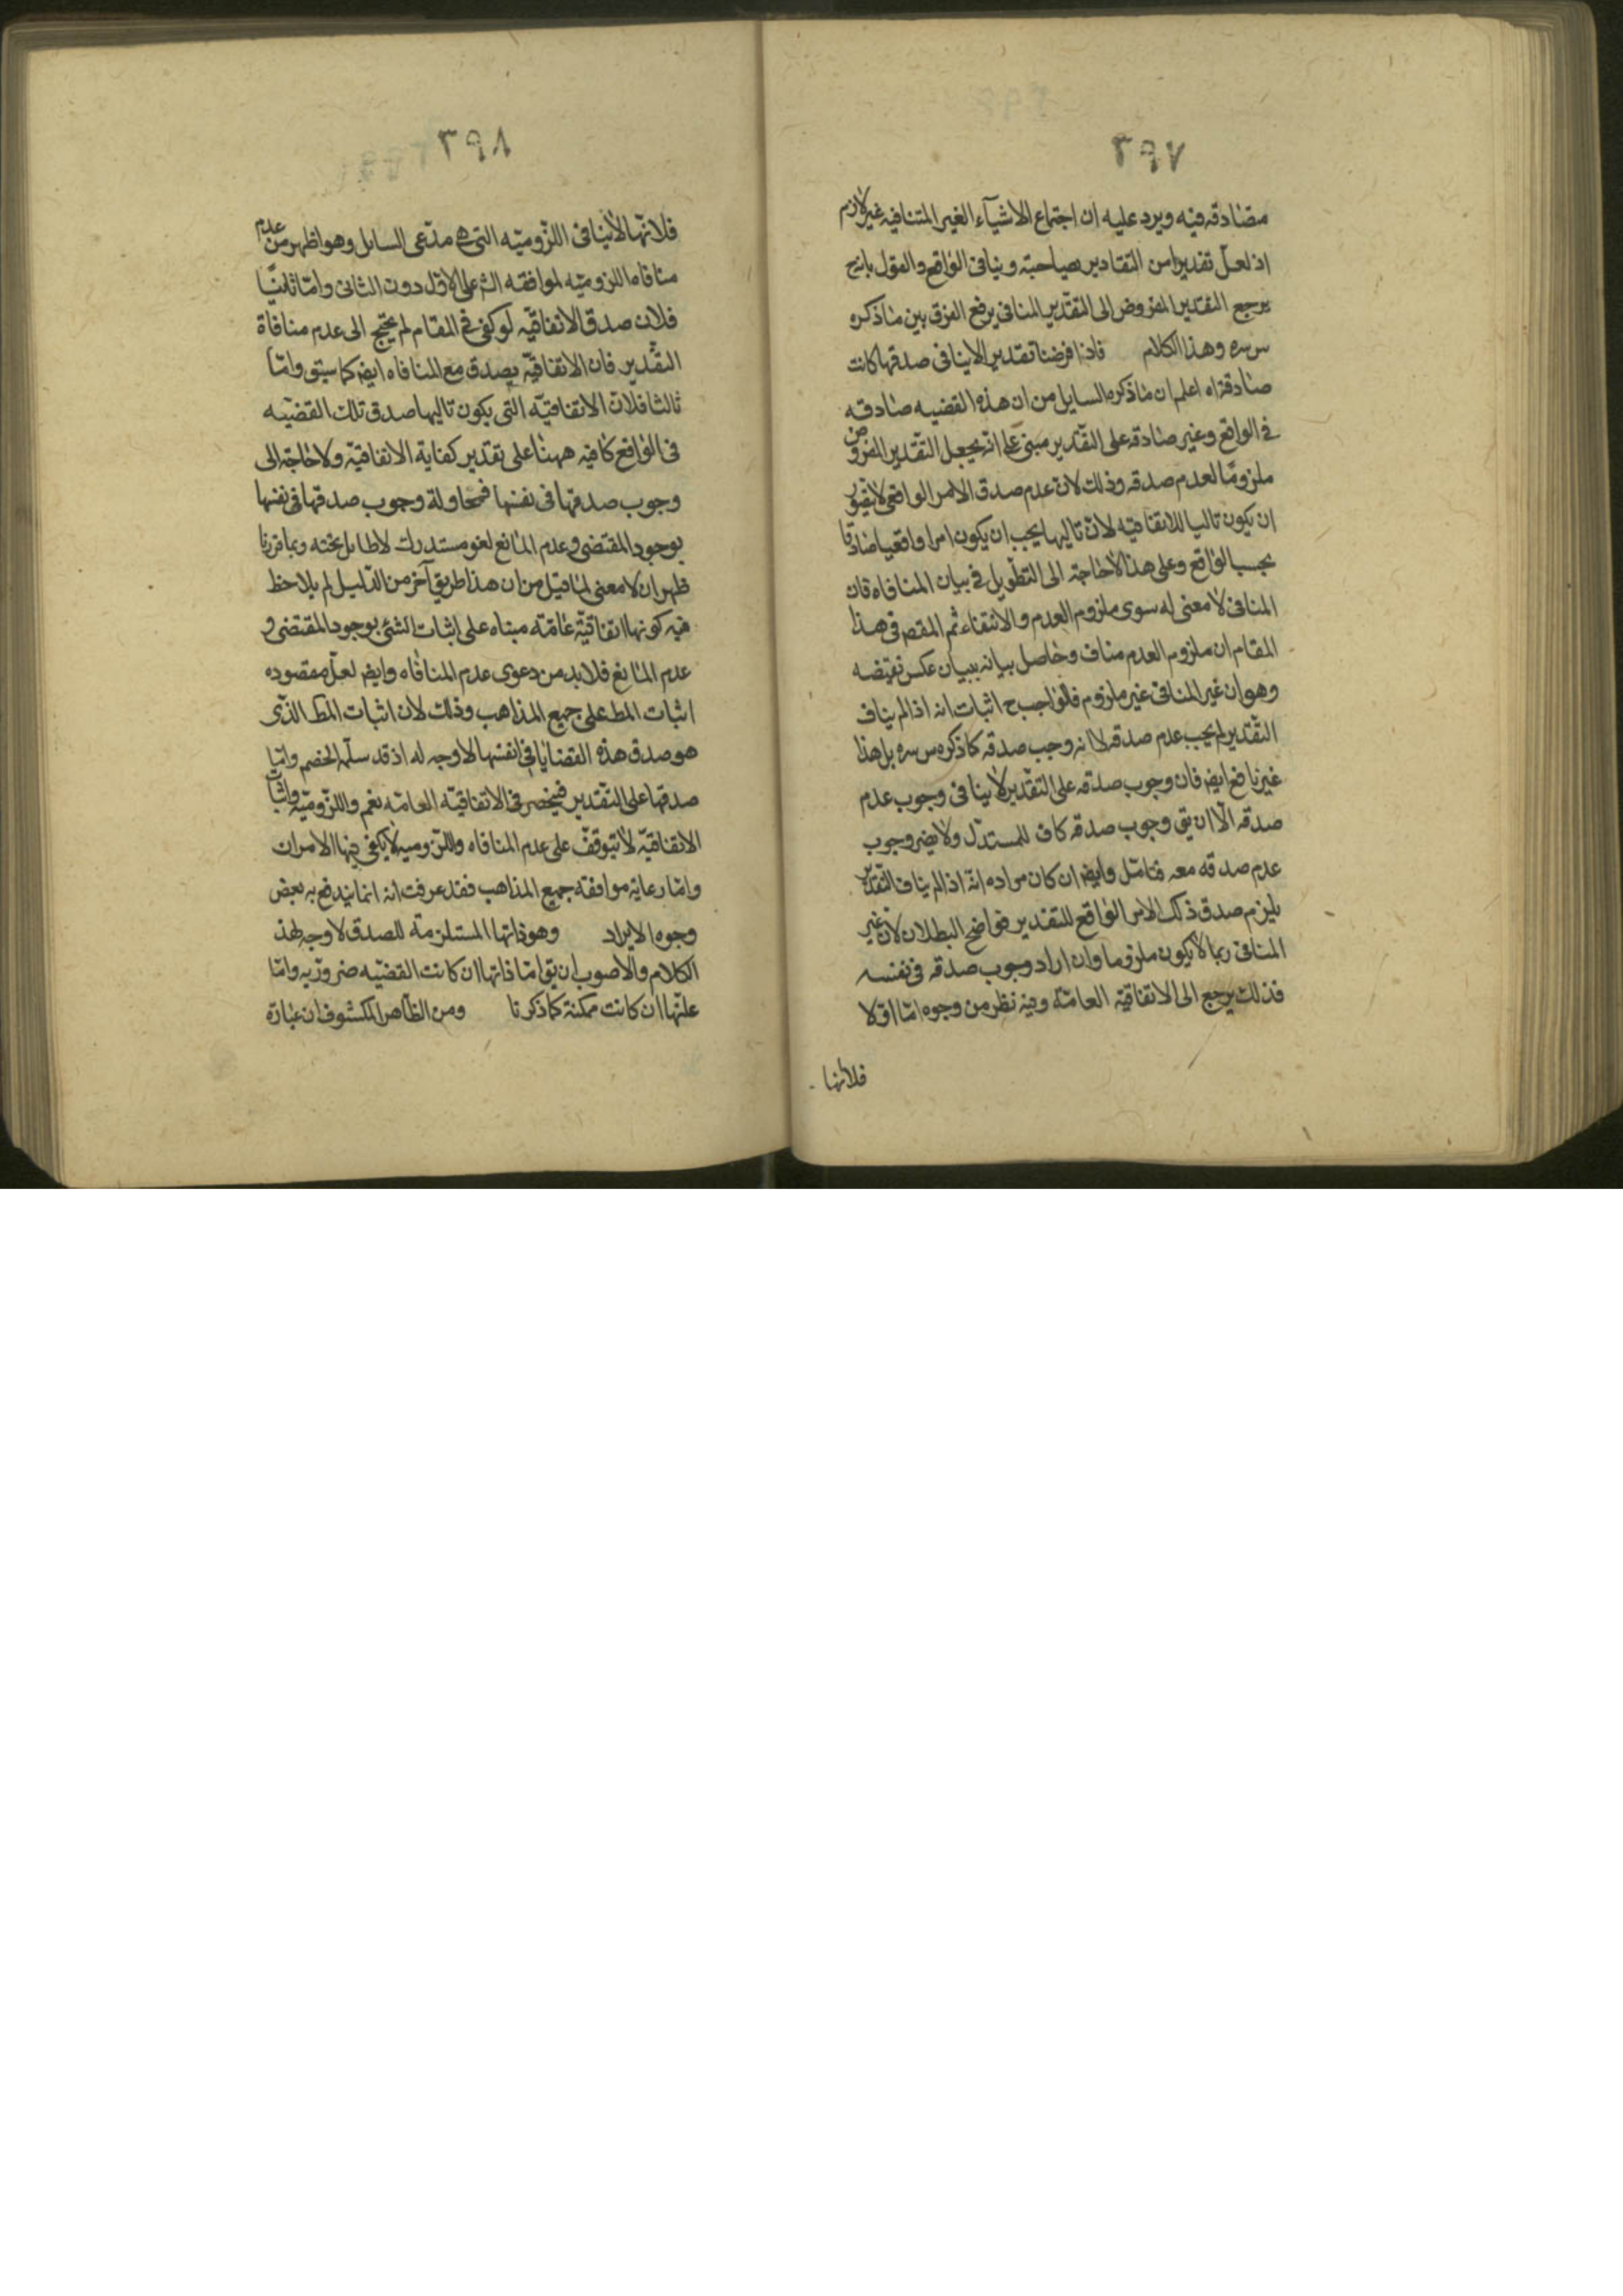 ٣٩٧
مصادقه فيه ويرد عليه ان اجتماع الاشيآء الغير المتنافيه غير لازم
اذ لعلّ تقديرا من التقادير يصاحبه وينافى الواقع والقول بانه ح
يرجع التقدير المفروض الى التقدير المنافى يرفع الفرق بين ما ذكره
س سره وهذا الكلام فاذا فرضنا تقديرا لاينافى صدقها كانت
صادقة اه اعلم ان ما ذكره السايل من ان هذه القضيه صادقه
فى الواقع وغير صادقه على التقدير مبنى على انه يجعل التقدير المفروض
ملزومًا لعدم صدقه وذلك لان عدم صدق الامر الواقعى لا يتصور
ان يكون تاليا للاتفاقيه لانّ تاليها يجب ان يكون امرا واقعيا صادقا
بحسب الواقع وعلى هذا لاحاجة الى التطويل فى بيان المنافاه فان
المنافى لا معنى له سوى ملزوم العدم والانتفاء ثم المقصم فى هذا
المقام ان ملزوم العدم مناف وحاصل بيانه ببيان عكس نقيضه
وهو ان غير المنافى غير ملزوم فالواجب ح اثبات انه اذا لم يناف
التقدير لم يجب عدم صدقه لا انه وجب صدقه كما ذكره س سره بل هذا
غير نافع ايضا فان وجوب صدقه على التقدير لا ينافى وجوب عدم
صدقه الّا ان يق وجوب صدقه كاف للمستدل ولا يضر وجوب
عدم صدقه معه فتامّل وايضا ان كان مراده انّه اذا لم يناف التقدير
يلزم صدق ذلك الامر الواقع للتقدير فواضح البطلان لان غير
المنافى ربما لا يكون ملزوما وان اراد وجوب صدقه فى نفسه
فذلك يرجع الى الاتفاقية العامّة وفيه نظر من وجوه امّا اولا
فلانها
٣٩٨
فلانّها لاينافى اللزوميّه التى هى مدّعى السايل وهو اظهر من عدم
منافاه اللزوميّه لموافقه الثم على الاول دون الثانى وامّا ثانيًا
فلان صدق الاتفاقيّه لو كفى فى المقام لم يحتج الى عدم منافاة
التقدير فان الاتفاقيّه يصدق مع المنافاه ايضا كما سبق وامّا
ثالثا فلان الاتفاقيّه التى يكون تاليها صدق تلك القضيّه
فى الواقع كافيه ههنا على تقدير كفاية الاتفاقيّه ولا حاجة الى
وجوب صدقها فى نفسها فمحاولة وجوب صدقها فى نفسها
بوجود المقتضى وعدم المانع لغو مستدرك لا طايل تحته وبما قررنا
ظهر ان لا معنى لما قيل من ان هذا طريق آخر من الدّليل لم يلاحظ
فيه كونها اتفاقيّة عامّة مبناه على اثبات الشئ بوجود المقتضى و
عدم المانع فلابد من دعوى عدم المنافاه وايضا لعلّ مقصوده
اثبات المط على جميع المذاهب وذلك لان اثبات المط الذى
هو صدق هذه القضايا فى انفسها لا وجه له اذ قد سلّمه الخصم وامّا
صدقها على التقدير فينحصر فى الاتفاقيّه العامّه نعم واللزوميّه واثبات
الاتفاقيّة لا يتوقف على عدم المنافاه واللزوميه لا يكفى فيها الامران
وامّا رعاية موافقة جميع المذاهب فقد عرفت انه انما يندفع به بعض
وجوه الايراد وهو ذاتها المستلزمة للصدق لا وجه لهذ
الكلام والاصوب ان يق امّا ذاتها ان كانت القضيّه ضروريّه وامّا
علتها ان كانت ممكنة كما ذكرنا ومن الظاهر المكشوف ان عبارة